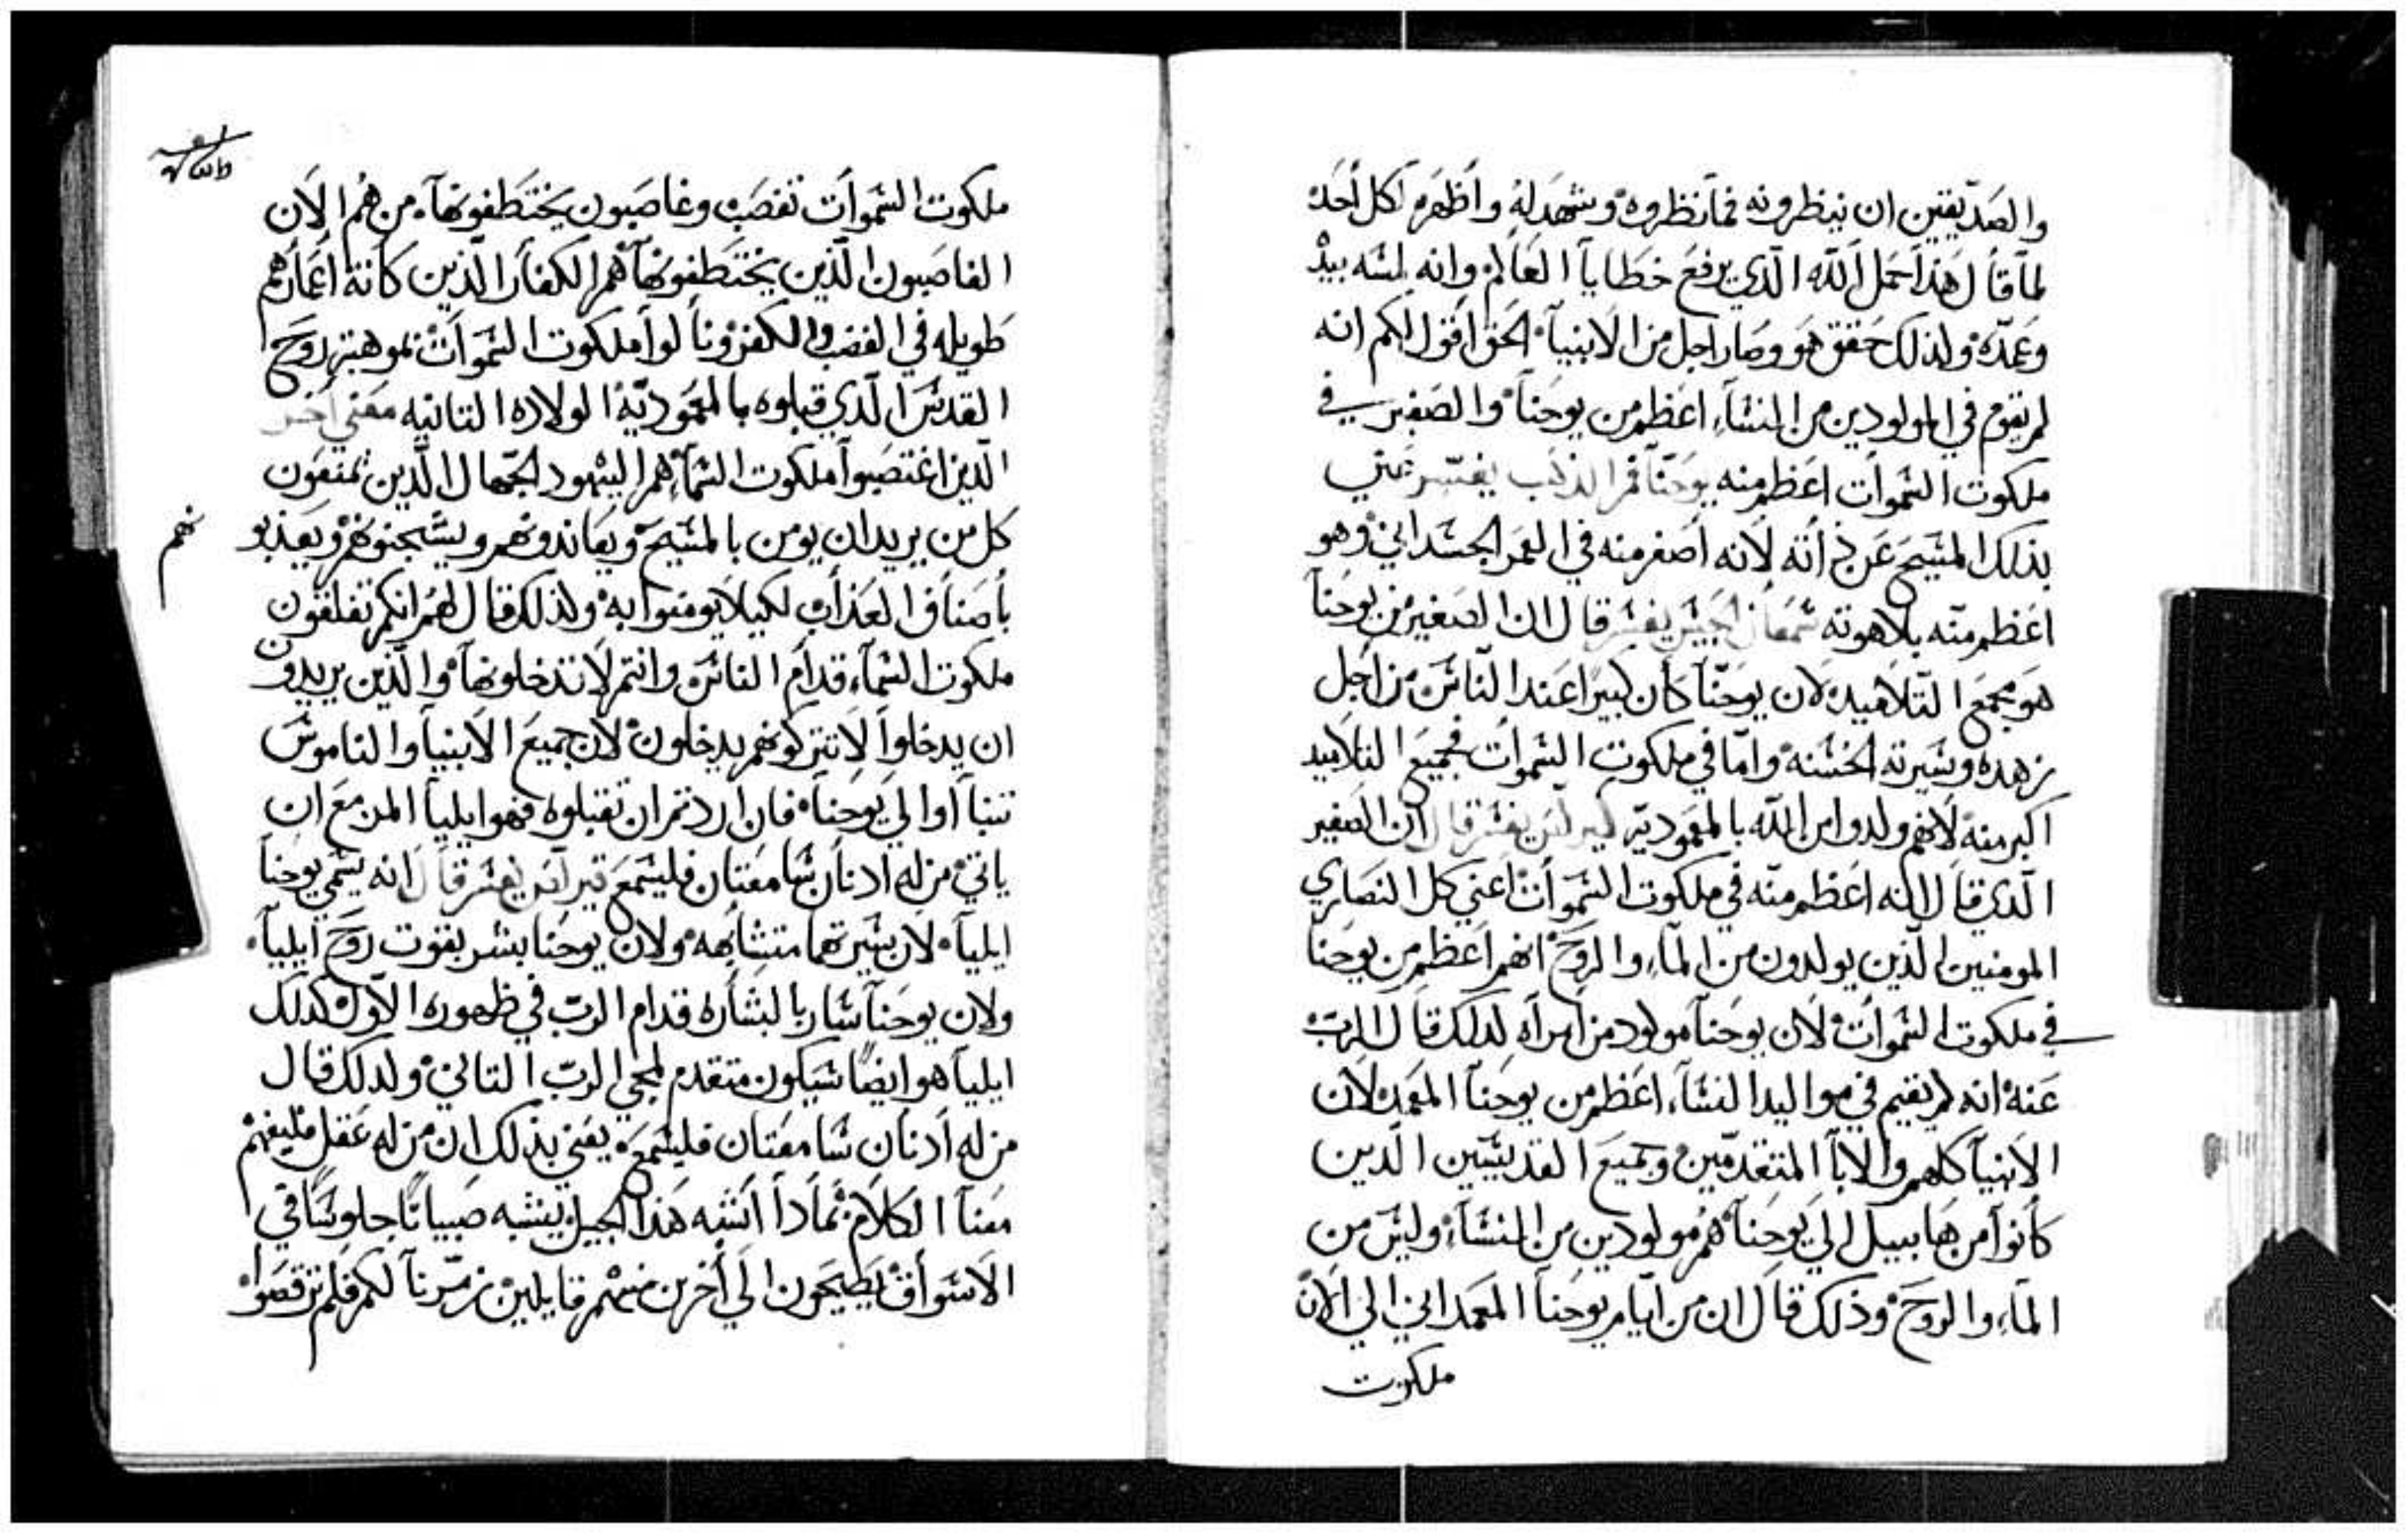 والصدّيقين ان ينظرونه فما نظروه وشهد له واظهره لكل أحد
لمّا قال هذا حمل الله الّذي يرفع خطايا العالم وانه لمسه بيده
وعمّده ولذلك حقق هو وصار اجل من الانبياء الحق اقول لكم انه
لم يقوم في المولودين من النساء اعظم من يوحنا والصغير في
ملكوت السموات اعظم منه يوحنّا فم الذهب يفسّر عني
بذلك المسيح عن ذاته لانه أصغر منه في العمر الجسداني وهو
اعظم منه بلاهوته سمعان الحبيس يفسر قال ان الصغير من يوحنا
هو مجمع التلاميد لان يوحنّا كان كبيرًا عند الناس من أجل
زهده وسيرته الحسنه وامّا في ملكوت السموات فجميع التلاميد
اكبر منه لانهم ولدوا من الله بالمعموديّه كيرلس يفسر قال ان الصغير
الّدي قال انه اعظم منه في ملكوت السموات اعني كل النصاري
المومنين الّذين يولدون من الماء والروح انهم اعظم من يوحنا
في ملكوت السموات لان يوحنا مولود من امراه لدلك قال الرب
عنه انه لم يقيم في مواليد النساء اعظم من يوحنا المعمد لان
الانبيا كلهم والابا المتقدّمين وجميع القديسين الّدين
كانوا من هابيل الي يوحنا هم مولودين من النساء وليس من
الماء والروح وذلك قال ان من ايّام يوحنا المعمداني الي الان
ملكوت
ملكوت السموات تغصب وغاصبون يختطفونها من هم الان
الغاصبون الّذين يختطفونها هم الكفار الّذين كانة اعمارهم
طويله في الغضب والكفر ونالوا ملكوت السموات بموهبة روح
القدس الّدي قبلوه بالمعموديّة الولاده التانيه معني اخر
الّدين اغتصبوا ملكوت السماء هم اليهود الجهال الّدين يمنعون
كل من يريد ان يومن بالمسيح ويعاندونهم ويسجنونهم ويعذبو
نهم
بأصناف العذاب لكيلا يومنوا به ولذلك قال لهم انكم تغلقون
ملكوت السماء قدام الناس وانتم لا تدخلونها والّذين يريدون
ان يدخلوا لا تتركونهم يدخلون لان جميع الانبيا والناموس
تنبأوا الي يوحنا فان اردتم ان تقبلوه فهو ايليا المزمع ان
ياتي من له ادنان سامعتان فليسمع كيرلس يفسر قال انه يسمي يوحنا
ايليا لان سيرتهما متشابهه ولان يوحنا بشر بقوت روح ايليا
ولان يوحنا سار بالبشاره قدام الرب في ظهوره الاوّل كدلك
ايليا هو ايضًا سيكون متقدم لمجي الرب التاني ولدلك قال
من له أدنان سامعتان فليسمع يعني بذلك ان من له عقل فليفهم
معنا الكلام بماداا اشبه هذا الجيل يشبه صبيانًا جلوسًا في
الاسواق يصيحون الي أخرين منهم قايلين زمّرنا لكم فلم ترقصوا